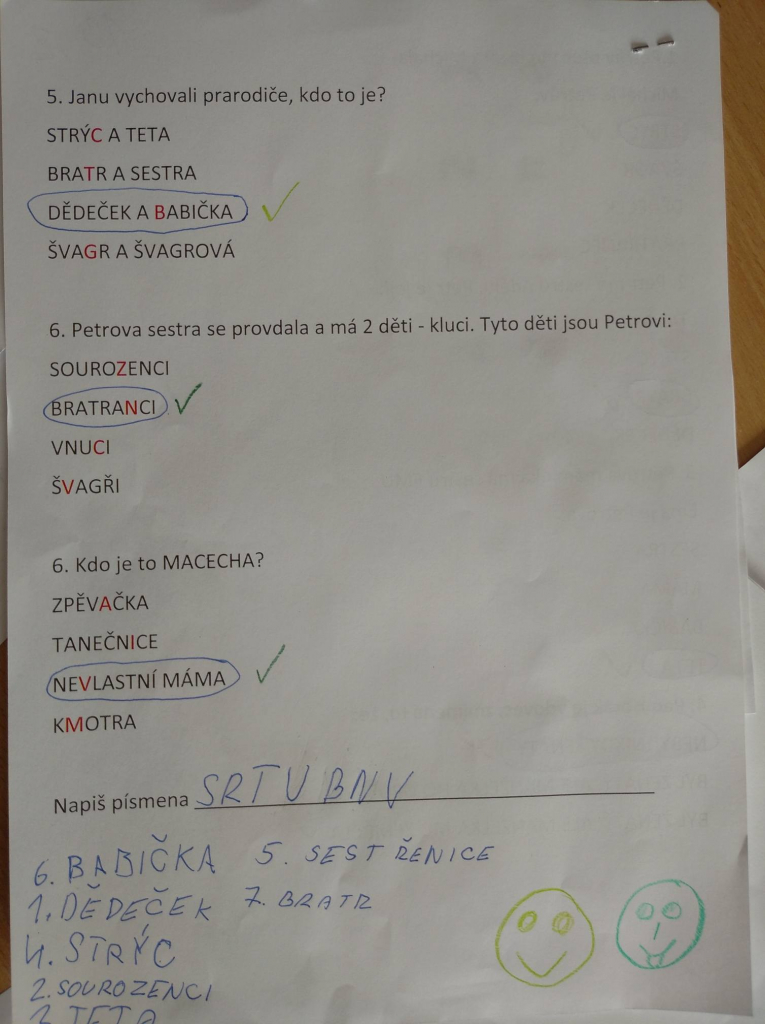 5. Janu vychovali prarodiče, kdo to je?
STRÝC A TETA
BRATR A SESTRA
DĚDEČEK A BABIČKA
ŠVAGR A ŠVAGROVÁ
6. Petrova sestra se provdala a má 2 děti - kluci. Tyto děti jsou Petrovi:
SOUROZENCI
BRATRANCI
VNUCI
ŠVAGŘI
6. Kdo je to MACECHA?
ZPĚVAČKA
TANEČNICE
NEVLASTNÍ MÁMA
KMOTRA
Napiš písmena SRTUBNV
6. BABIČKA 5. SESTŘENICE
1. DĚDEČEK 7. BRATR
4. STRÝC
2. SOUROZENCI
3. TETA